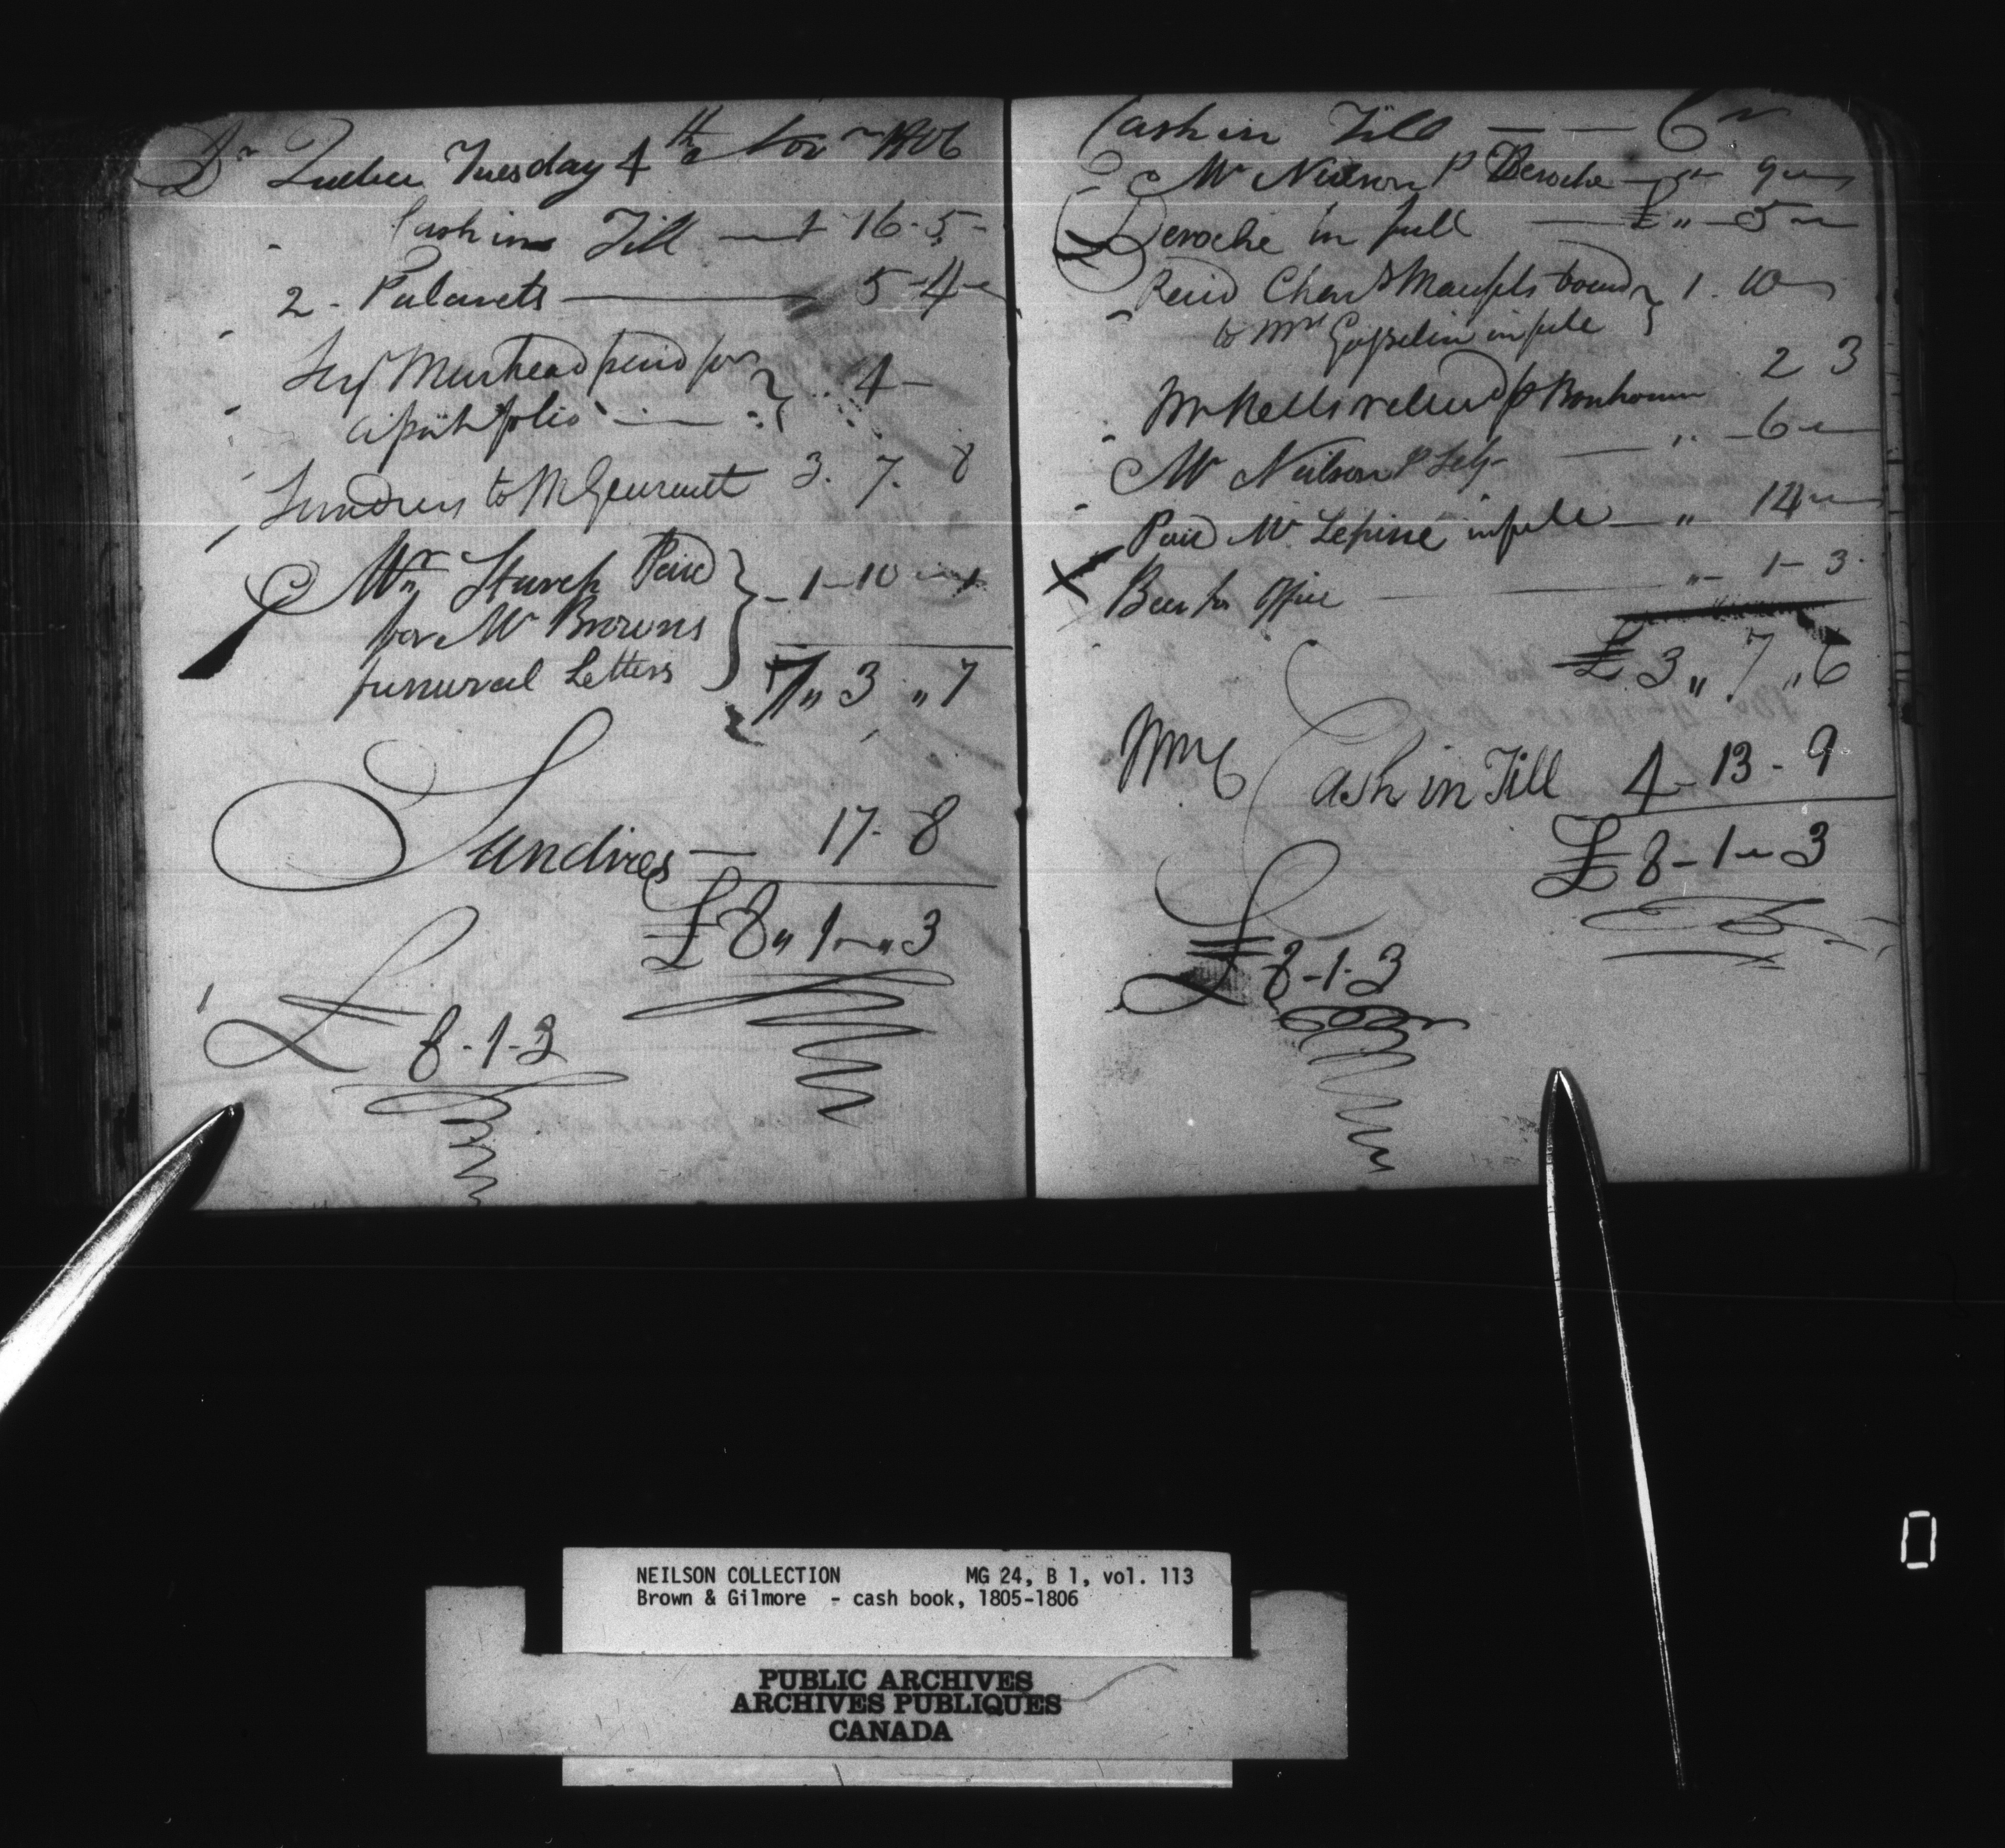 Dr Quebec Tuesday 4th Novr 1806
Cash in Till — 1 16 . 5 -
2 - Palavets — 5 - 4
Muirhead paid for
folio — 4 -
Sundries to 3 . 7 . 8
Mr Paid
for Mr Browns } - 1 - 10 - 1
funural Letters
7 „ 3 „ 7
Sundires — 17 - 8
£ 8 „ 1 „ 3
£ 8 - 1 - 3
Cash in Till — — Cr
Mr Neilson P Deroche — „ 9
Deroche in full — £ „ 5
Paid Chas bound } 1 . 10
to Mr Gosselin in full
Mr Kells P Bonhomm 2 3
Mr Neilson P Self — „ 6
Paid Mr Lepine in full — „ 14
Beer for Office — „ 1 - 3
£ 3 „ 7 „ 6
Cash in Till 4 - 13 - 9
£ 8 - 1 - 3
£ 8 - 1 - 3
NEILSON COLLECTION MG 24, B 1, vol. 113
Brown & Gilmore - cash book, 1805-1806
PUBLIC ARCHIVES
ARCHIVES PUBLIQUES
CANADA